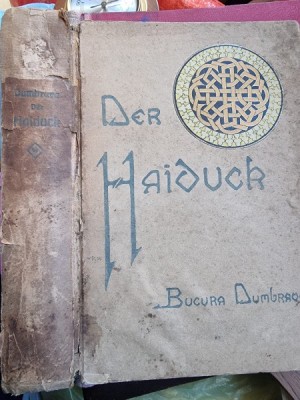 Dumbrava
Der
Haiduck
Der
Haiduck
Bucura Dumbrav